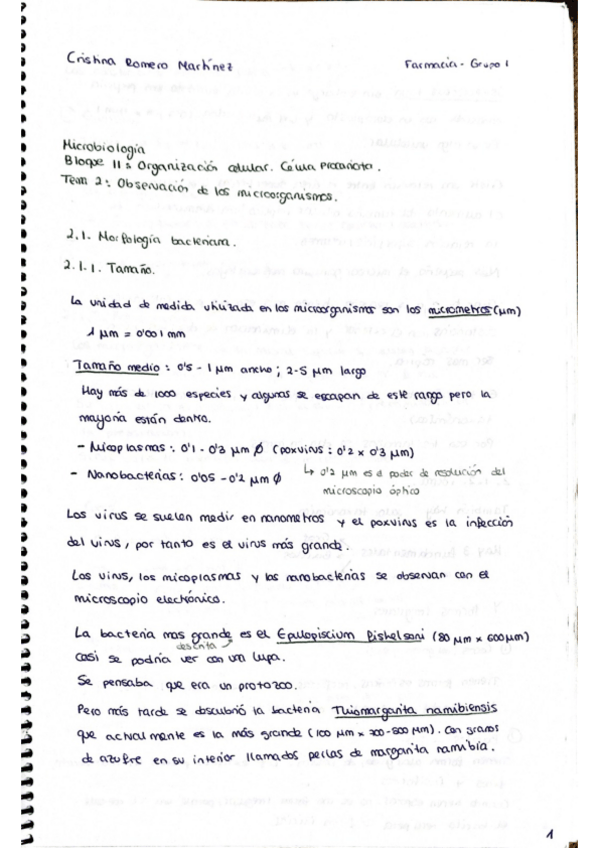 Cristina Romero Martínez
Farmacia - Grupo 1
Microbiología
Bloque II: Organización celular. Célula Procariota.
Tema 2: Observación de los microorganismos.
2.1. Morfología bacteriana.
2.1.1. Tamaño.
La unidad de medida utilizada en los microorganismos son los micrometros (µm)
1 µm = 0'001 mm
Tamaño medio: 0'5 - 1 µm ancho; 2-5 µm largo
Hay más de 1000 especies y algunas se escapan de este rango pero la
mayoría están dentro.
- Micoplasmas: 0'1 - 0'3 µm Ø (poxvirus: 0'2 x 0'3 µm)
- Nanobacterias: 0'05 - 0'2 µm Ø
↳ 0'2 µm es el poder de resolución del
microscopio óptico
Los virus se suelen medir en nanometros y el poxvirus es la infección
del virus, por tanto es el virus más grande.
Los virus, los micoplasmas y las nanobacterias se observan con el
microscopio electrónico.
La bacteria mas grande es el Epulopiscium Fishelsoni (80 µm x 600µm)
descrita
casi se podría ver con un lupa.
Se pensaba que era un protozoo.
Pero más tarde se descubrió la bacteria Thiomargarita namibiensis
que actualmente es la más grande (100 µm x 300-800 µm). Con granos
de azufre en su interior llamados perlas de margarita namibia.
1